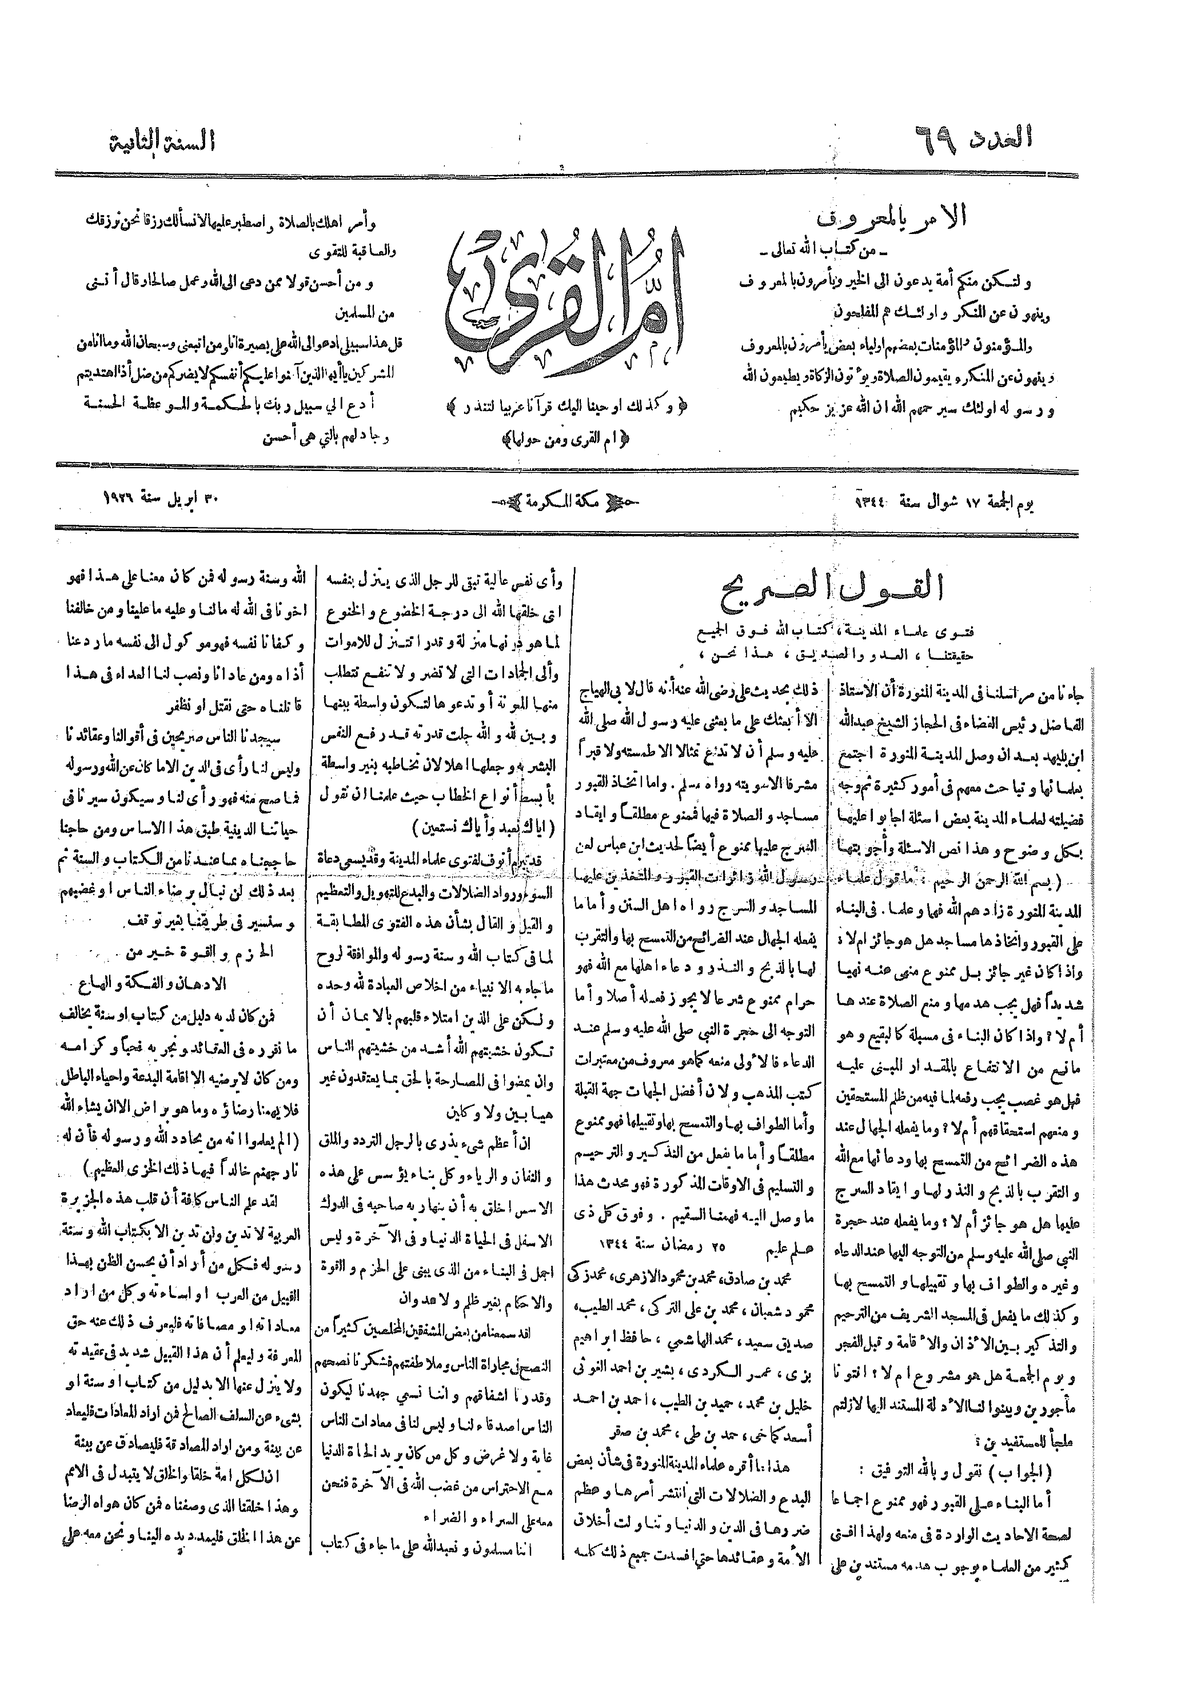 العدد ٦٩
السنة الثانية
الامر بالمعروف
ـ من كتاب الله تعالى ـ
ولتكن منكم أمة يدعون الى الخير ويأمرون بالمعروف
وينهون عن المنكر واولئك هم المفلحون
والمؤمنون والمؤمنات بعضهم اولياء بعض يأمرون بالمعروف
وينهون عن المنكر ويقيمون الصلاة ويؤتون الزكاة ويطيعون الله
ورسوله اولئك سيرحمهم الله ان الله عزيز حكيم
أم القرى
﴿ وكذلك اوحينا اليك قرآنا عربيا لتنذر ﴾
﴿ ام القرى ومن حولها ﴾
وأمر اهلك بالصلاة واصطبر عليها لا نسألك رزقا نحن نرزقك
والعاقبة للتقوى
ومن أحسن قولا ممن دعى الى الله وعمل صالحا وقال أننى
من المسلمين
قل هذا سبيلي ادعو الى الله على بصيرة انا ومن اتبعنى وسبحان الله وما انا من
المشركين يا أيها الذين آمنوا عليكم أنفسكم لا يضركم من ضل أذا اهتديتم
أدع الي سبيل ربك بالحكمة والموعظة الحسنة
وجادلهم بالتي هى أحسن
يوم الجمعة ١٧ شوال سنة ١٣٤٤
مكة المكرمة
٣٠ ابريل سنة ١٩٢٦
القول الصريح
فتوى علماء المدينة، كتاب الله فوق الجميع
حقيقتنا، العدو والصديق، هذا نحن،
جاءنا من مراسلنا فى المدينة المنورة أن الاستاذ
الفاضل رئيس القضاء فى الحجاز الشيخ عبدالله
ابن بليهد بعد ان وصل المدينة المنورة اجتمع
بعلمائها وتباحث معهم فى أمور كثيرة ثم وجه
فضيلته لعلماء المدينة بعض اسئلة اجابوا عليها
بكل وضوح وهذا نص الاسئلة وأجوبتها
( بسم الله الرحمن الرحيم : ما قول علماء
المدينة المنورة زادهم الله فهما وعلما. فى البناء
على القبور واتخاذها مساجد هل هو جائز ام لا ؟
واذا كان غير جائز بل ممنوع منهى عنه نهيا
شديداً فهل يجب هدمها ومنع الصلاة عندها
أم لا ؟ واذا كان البناء فى مسبلة كالبقيع وهو
مانع من الانتفاع بالمقدار المبنى عليه
فهل هو غصب يجب رفعه لما فيه من ظلم المستحقين
ومنعهم استحقاقهم أم لا ؟ وما يفعله الجهال عند
هذه الضرائح من التمسح بها ودعائها مع الله
والتقرب بالذبح والنذر لها وايقاد السرج
عليها هل هو جائز أم لا ؟ وما يفعله عند حجرة
النبي صلى الله عليه وسلم من التوجه اليها عند الدعاء
وغيره والطواف بها وتقبيلها والتمسح بها
وكذلك ما يفعل فى المسجد الشريف من الترحيم
والتذكير بين الاذان والاقامة وقبل الفجر
ويوم الجمعة هل هو مشروع ام لا ؟ افتونا
مأجورين وبينوا لنا الادلة المستند اليها لازلتم
ملجأ للمستفيدين :
( الجواب ) نقول وبالله التوفيق :
أما البناء على القبور فهو ممنوع اجماعا
لصحة الاحاديث الواردة فى منعه ولهذا افتى
كثير من العلماء بوجوب هدمه مستندين على
ذلك بحديث على رضى الله عنه أنه قال لابي الهياج
الا أبعثك على ما بعثنى عليه رسول الله صلى الله
عليه وسلم أن لا تدع تمثالا الا طمسته ولا قبراً
مشرفا الا سويته رواه مسلم. واما اتخاذ القبور
مساجد والصلاة فيها فممنوع مطلقا وايقاد
السرج عليها ممنوع أيضا لحديث ابن عباس لعن
رسول الله زائرات القبور والمتخذين عليها
المساجد والسرج رواه اهل السنن وأما ما
يفعله الجهال عند الضرائح من التمسح بها والتقرب
لها بالذبح والنذر ودعاء اهلها مع الله فهو
حرام ممنوع شرعا لا يجوز فعله أصلا وأما
التوجه الى حجرة النبي صلى الله عليه وسلم عند
الدعاء فالاولى منعه كما هو معروف من معتبرات
كتب المذهب ولان أفضل الجهات جهة القبلة
وأما الطواف بها والتمسح بها وتقبيلها فهو ممنوع
مطلقا وأما ما يفعل من التذكير والترحيم
والتسليم فى الاوقات المذكورة فهو محدث هذا
ما وصل اليه فهمنا السقيم. وفوق كل ذى
علم عليم ٢٥ رمضان سنة ١٣٤٤
محمد بن صادق، محمد بن محمود الازهرى، محمد زكى
محمود شعبان، محمد بن على التركى، محمد الطيب،
صديق سعيد، محمد الهاشمى، حافظ ابراهيم
بزى، عمر الكردى، بشير بن احمد الغوثى
خليل بن محمد، حميد بن الطيب، احمد بن احمد
أسعد كماخى، حمد بن طى، محمد بن صقر
هذا ما أقره علماء المدينة المنورة فى شأن بعض
البدع والضلالات التى انتشر أمرها وعظم
ضررها فى الدين والدنيا وتناولت أخلاق
الأمة وعقائدها حتى افسدت جميع ذلك كله
وأى نفس عالية تبقى للرجل الذى يتنزل بنفسه
التى خلقها الله الى درجة الخضوع والخنوع
لما هو دونها منزلة وقدرا تتنزل للاموات
وألى الجمادات التى لا تضر ولا تنفع تتطلب
منها المونة أو تدعوها لتكون واسطة بينها
وبين الله والله جلت قدرته قد رفع النفس
البشرية وجعلها اهلا لان تخاطبه بغير واسطة
بأبسط أنواع الخطاب حيث علمنا ان نقول
( اياك نعبد وأياك نستعين )
قد ترم أنوف لفتوى علماء المدينة وقد يسعى دعاة
السوء ورواد الضلالات والبدع للتهويل والتعظيم
والقيل والقال بشأن هذه الفتوى المطابقة
لما فى كتاب الله وسنة رسوله والموافقة لروح
ما جاء به الانبياء من اخلاص العبادة لله وحده
ولكن على الذين امتلاء قلبهم بالايمان أن
تكون خشيتهم الله أشد من خشيتهم الناس
وان يمضوا فى المصارحة بالحق بما يعتقدون غير
هيابين ولا وكاين
ان أعظم شىء يذرى بالرجل التردد والملق
والنفاق والرياء وكل بناء يؤسس على هذه
الاسس اخلق به أن ينهار به صاحبه فى الدرك
الاسفل فى الحياة الدنيا وفى الآخرة وليس
اجمل فى البناء من الذى يبنى على الحزم والقوة
والاحكام بغير ظلم ولا عدوان
لقد سمعنا من بعض المشفقين المخلصين كثيراً من
النصح فى مجاراة الناس وملاطفتهم فشكرنا نصحهم
وقدرنا اشفاقهم واننا نسعي جهدنا ليكون
الناس اصدقاء لنا وليس لنا فى معادات الناس
غاية ولا غرض وكل من كان يريد الحياة الدنيا
مع الاحتراس من غضب الله فى الآخرة فنحن
معه على السراء والضراء
اننا مسلمون ونعبد الله على ما جاء فى كتاب
الله وسنة رسوله فمن كان معنا على هذا فهو
اخونا فى الله له مالنا وعليه ما علينا ومن خالفنا
وكفانا نفسه فهو موكول الى نفسه ما ردعنا
أذاه ومن عادانا ونصب لنا العداء فى هذا
قاتلناه حتى نقتل او نظفر
سيجدنا الناس صريحين فى أقوالنا وعقائدنا
وليس لنا رأى فى الدين الا ما كان عن الله ورسوله
فما صح منه فهو رأى لنا وسيكون سيرنا فى
حياتنا الدينية طبق هذا الاساس ومن حاجنا
حاججناه بما عندنا من الكتاب والسنة ثم
بعد ذلك لن نبال برضاء الناس او غضبهم
وسنسير فى طريقنا بغير توقف.
الحزم والقوة خير من
الادهان والفكة والهاع
فمن كان لديه دليل من كتاب او سنة يخالف
ما نقرره فى العقائد ونجربه فحبا وكرامه
ومن كان لا يرضيه الا اقامة البدعة واحياء الباطل
فلا يهمنا رضاؤه وما هو براض الا ان يشاء الله
( الم يعلموا انه من يحادد الله ورسوله فأن له
نار جهنم خالداً فيها ذلك الخزى العظيم. )
لقد علم الناس كافة أن قلب هذه الجزيرة
العربية لا تدين ولن تدين الا بكتاب الله وسنة
رسوله فكل من أراد أن يحسن الظن بهذا
القبيل من العرب او اساءته وكل من اراد
معاداته او مصافاته فليعرف ذلك عنه حق
المعرفة وليعلم أن هذا القبيل شديد فى عقيدته
ولا ينزل عنها الا بدليل من كتاب او سنة او
بشىء عن السلف الصالح فمن اراد المعادات فليعاد
عن بينة ومن اراد المصادقة فليصادق عن بينة
ان لكل امة خلقا والخلق لا يتبدل فى الامم
وهذا خلقنا الذى وصفناه فمن كان هواه الرضا
عن هذا الخلق فليمدد يده الينا ونحن معه على